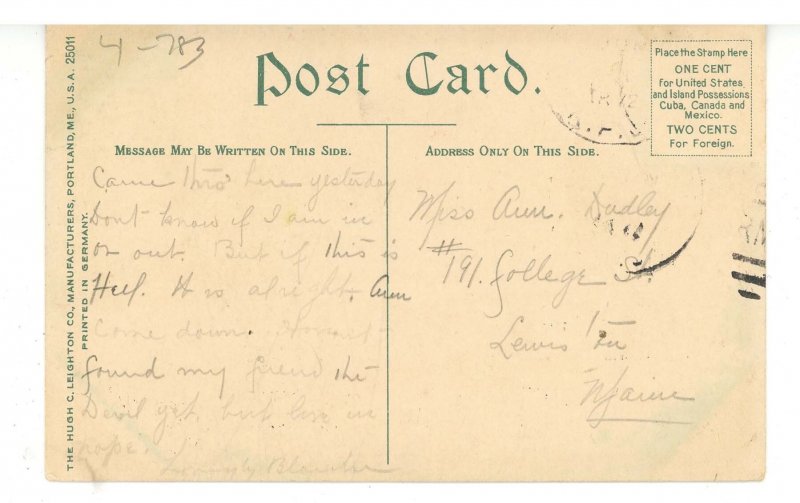 4-783
Post Card.
Place the Stamp Here
ONE CENT
For United States
and Island Possessions
Cuba, Canada and
Mexico.
TWO CENTS
For Foreign.
THE HUGH C. LEIGHTON CO., MANUFACTURERS, PORTLAND, ME., U.S.A. 25011
PRINTED IN GERMANY.
MESSAGE MAY BE WRITTEN ON THIS SIDE.
Came thro' here yesterday
Dont know if I am in
or out. But if this is
Hell. It is alright. Ann
Come down.
found my friend the
Devil yet, but live in
hope.
Lovingly Blanche
ADDRESS ONLY ON THIS SIDE.
Miss Ann. Dudley
#191. College St.
Lewiston
Maine